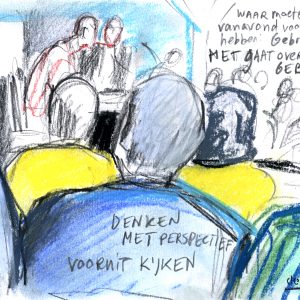 WAAR moeten
vanavond voor
hebben! Gebr
HET GAAT OVER
GEB
DENKEN
MET PERSPECTIEF
VOORUIT KIJKEN